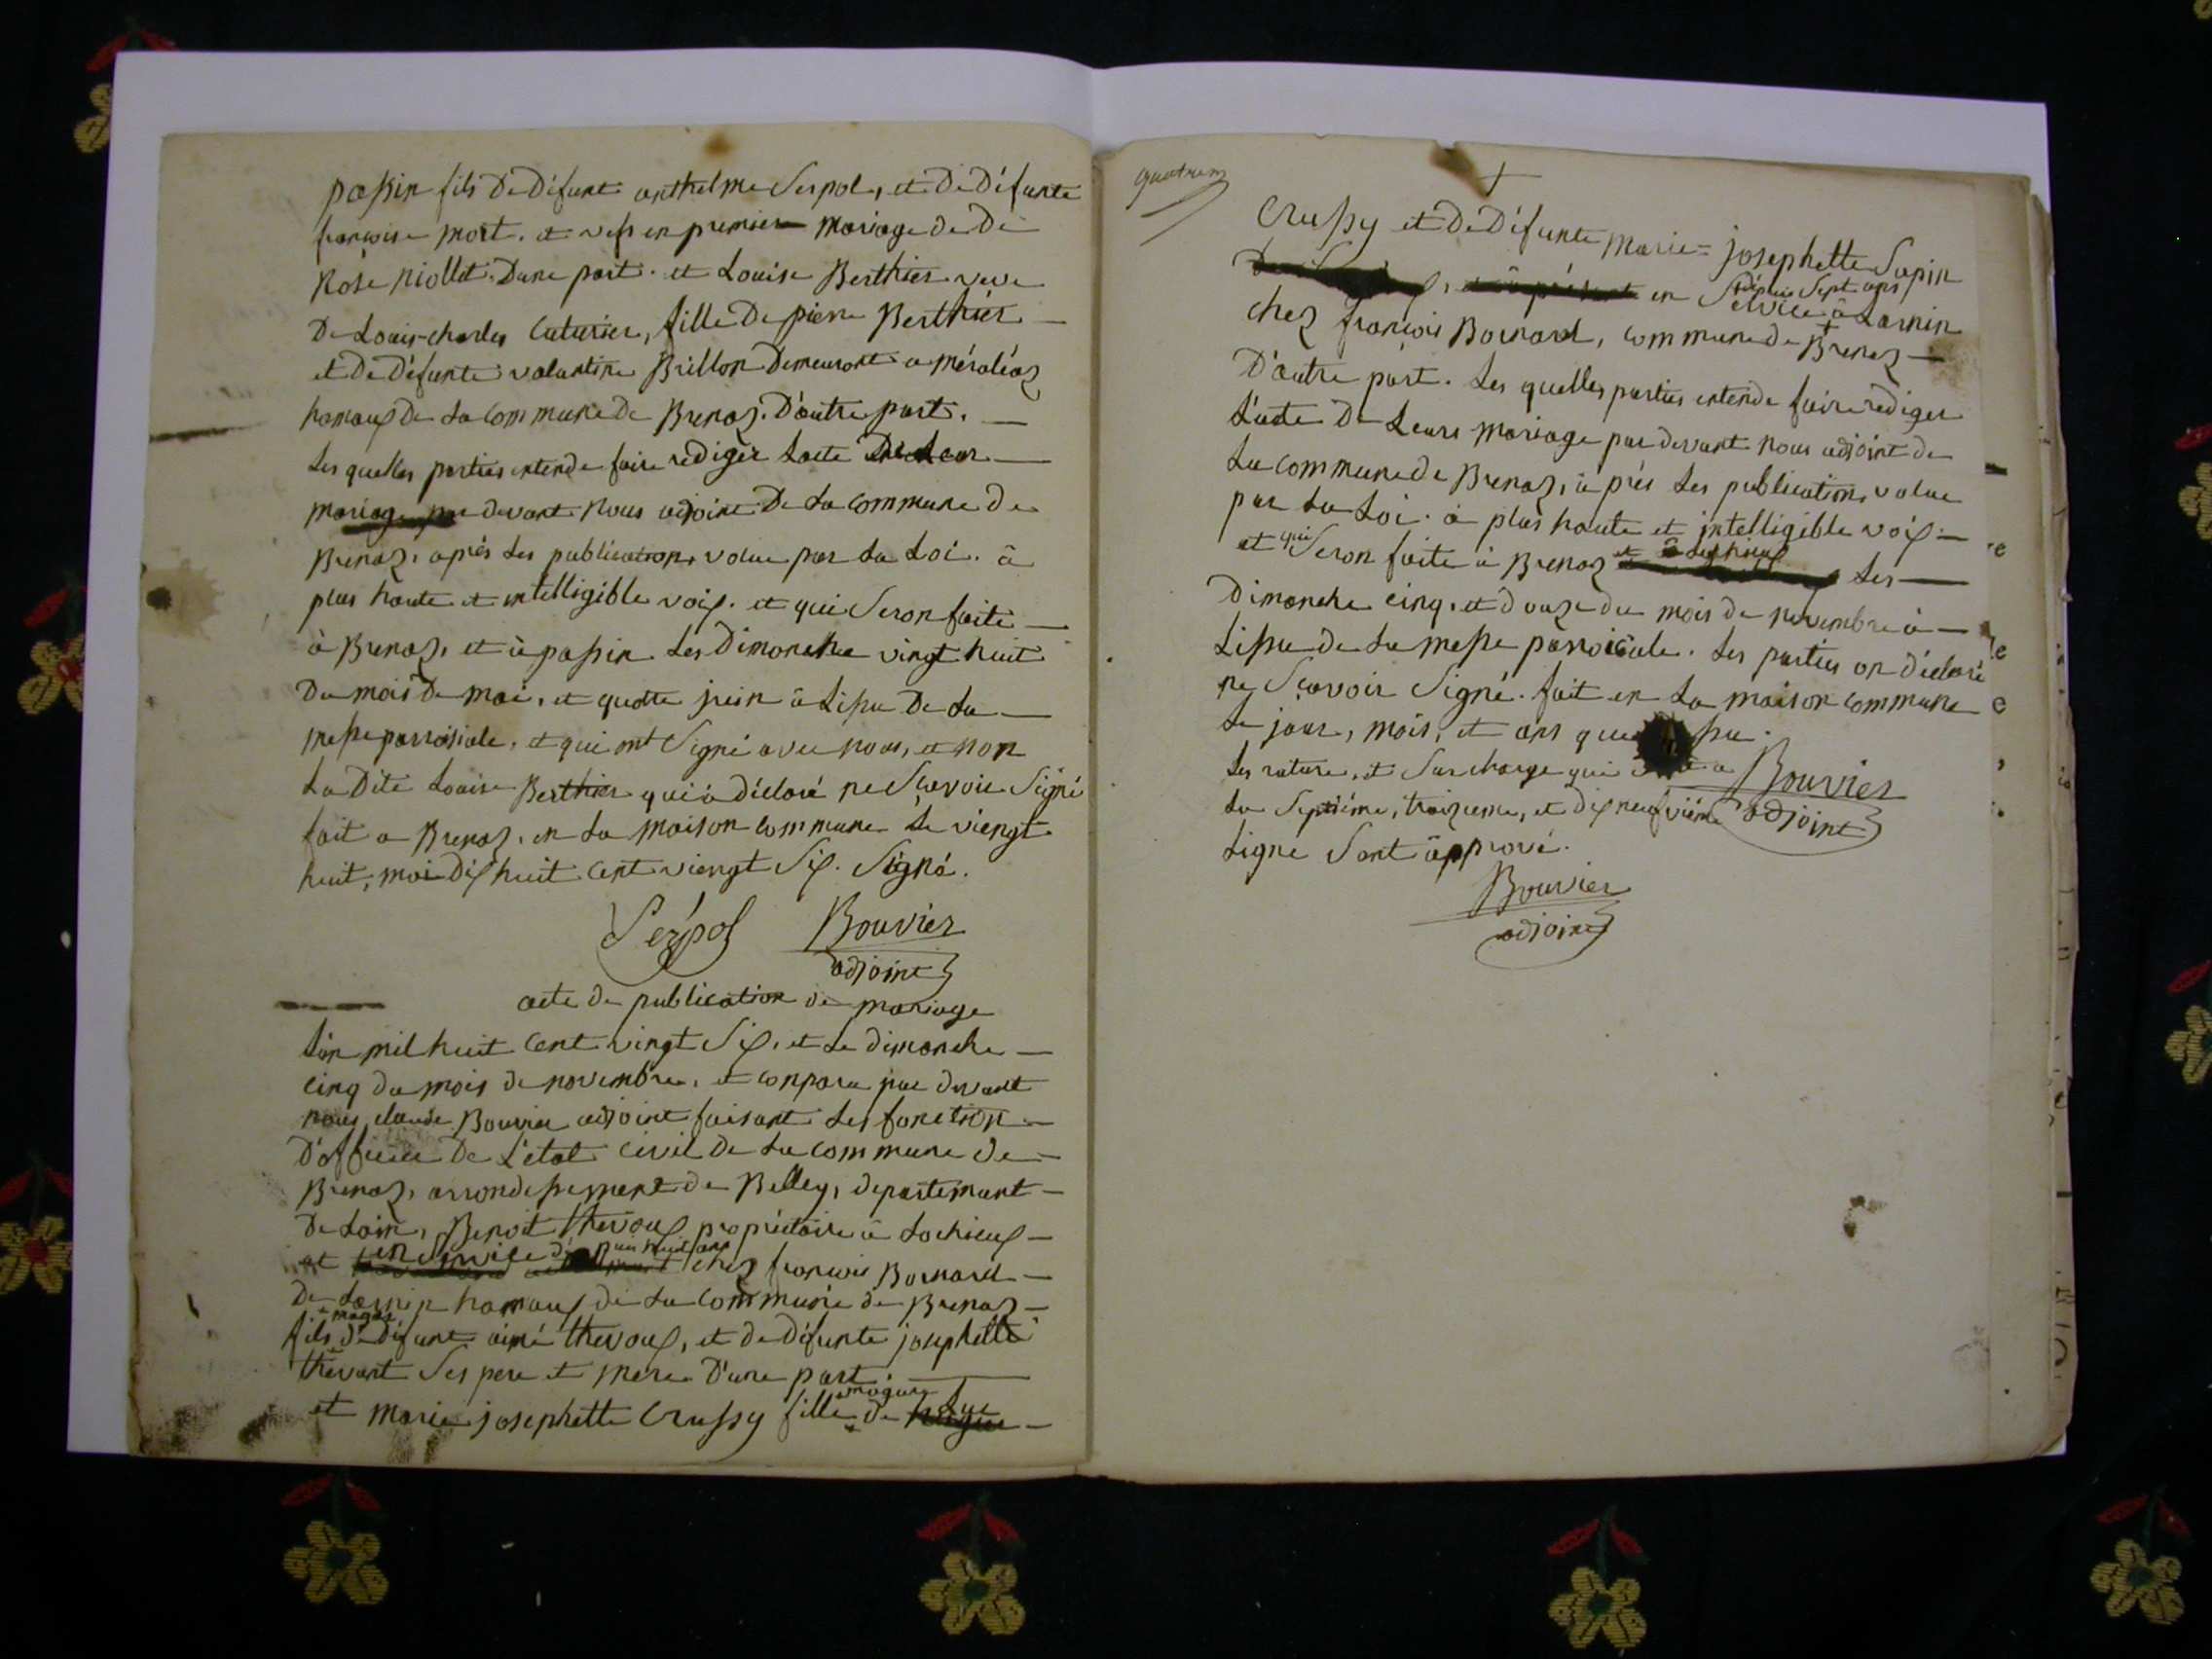 passin fils De Défunt anthelme Serpol, et De Défunte
francoise mort. et vefs en premier mariage de De
Rose niollet. Dune part. et Louise Berthier veve
De Louis-charles Cuturier, fille De pierre Berthier
et De Défunte valantine Brillon Demeurant a méraléaz
hamaux de La Commune De Brenaz. D'autre part.
Les quelles parties entende faire rediger Lacte De Leur
mariage par devant nous adjoint De La Commune De
Brenaz, aprés Les publication, volue par La Loi. à
plus haute et intelligible voix. et qui Seron faite
à Brenaz, et à passin Les Dimanche vingt huit
Du mois De mai, et quatte juin à Lissu De La
messe parroisiale, et qui ont Signé avec nous, et non
La Dite Louise Berthier qui à Déclaré ne Sçavoir Signé
fait a Brenaz, en La maison commune Le viengt
huit, mai Dix huit Cent viengt Six. Signé.
Serpol Bouvier
adjoint
acte de publication de mariage
L'an mil huit Cent vingt Six, et Le dimanche
cinq du mois de novembre, et conparu par devant
nous claude Bouvier adjoint faisant Les fonction
D'officier De L'etat Civil De La Commune de
Brenaz, arrondessement de Belley, departemant
De Lain, Benoit thevoux propriétaire à Lochieux
et en Service depuis huit ans chez francois Bornard
De Larnin hamaux de La Commune de Brenaz
fils majeur de défunt aimé thevoux, et de Défunte josephette
thevant Ses pere et mere D'une part
et marie josephette Crussy fille majeure de
quatrem
Crussy et De Défunte marie = josephette Supin
en Service depuis Sept ans à Larnin
chez francois Bornard, commune de Brenaz
D'autre part. Les quelles parties entende faire rediger
L'acte De Leurs mariage par devant nous adjoint de
La Commune de Brenaz, à prés Les publication, volue
par La Loi. à plus haute et intelligible voix
et qui Seron faite à Brenaz et à Lochieux Les
Dimanche cinq, et douze du mois de novembre à
Lissu de La messe parroisiale. Les parties on déclaré
ne Sçavoir Signé. fait en La maison commune
Le jour, mois, et ans que
Les rature, et Surcharge qui
La Septiéme, traizieme, et dix neufviéme
Ligne Sont apprové.
Bouvier
adjoint
Bouvier
adjoint